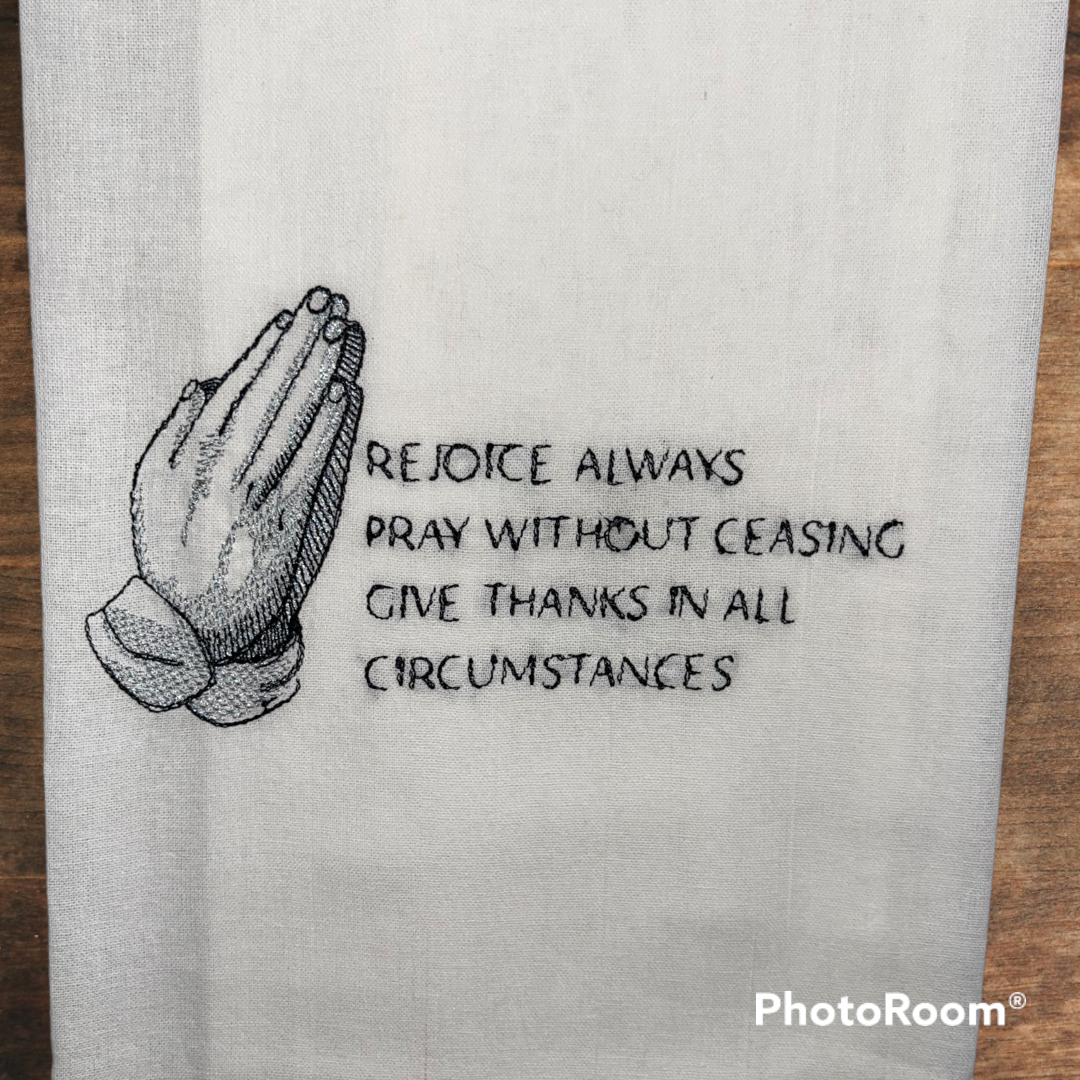 REJOICE ALWAYS
PRAY WITHOUT CEASING
GIVE THANKS IN ALL
CIRCUMSTANCES
PhotoRoom®